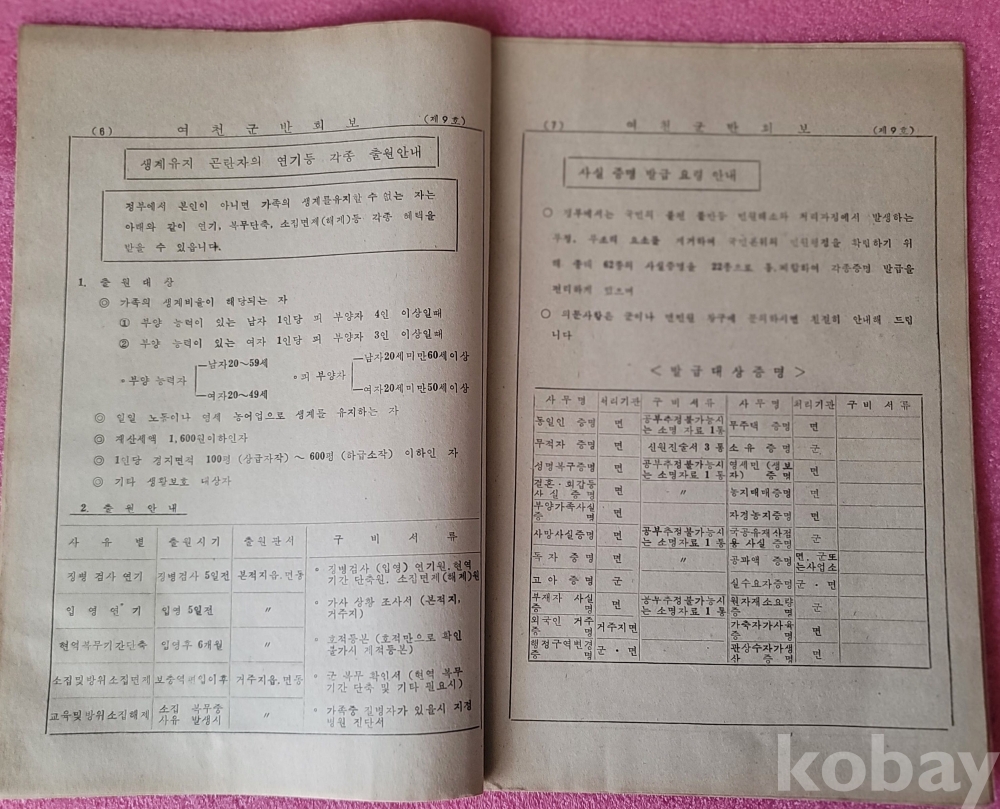 (6) 여천군반회보 (제9호)
생계유지 곤란자의 연기등 각종 출원안내
정부에서 본인이 아니면 가족의 생계를유지할 수 없는 자는
아래와 같이 연기, 복무단축, 소집면제(해제)등 각종 혜택을
받을 수 있읍니다.
1. 출원대상
◎ 가족의 생계비율이 해당되는 자
① 부양 능력이 있는 남자 1인당 피 부양자 4인 이상일때
② 부양 능력이 있는 여자 1인당 피 부양자 3인 이상일때
남자20~59세 남자20세미만60세이상
◦부양 능력자 ◦피 부양자
여자20~49세 여자20세미만50세이상
◎ 일일 노동이나 영세 농어업으로 생계를 유지하는 자
◎ 재산세액 1,600원이하인자
◎ 1인당 경지면적 100평 (상급자작) ~ 600평 (하급소작) 이하인 자
◎ 기타 생활보호 대상자
2. 출원안내
사유별 출원시기 출원관서 구비서류
징병 검사 연기 징병검사 5일전 본적지읍.면동 ◦ 징병검사 (입영) 연기원, 현역
기간 단축원, 소집면제 (해제)원
입영연기 입영 5일전 〃 ◦ 가사 상황 조사서 (본적지,
거주지)
현역복무기간단축 입영후 6개월 〃 ◦ 호적등본 (호적만으로 확인
불가시 제적등본)
소집및방위소집면제 보충역편입이후 거주지읍.면동 ◦ 군 복무 확인서 (현역 복무
기간 단축 및 기타 필요시)
교육및방위소집해제 소집 복무중
사유 발생시 〃 ◦ 가족중 질병자가 있을시 지정
병원 진단서
(7) 여천군반회보 (제9호)
사실 증명 발급 요령 안내
○ 정부에서는 국민의 불편 불만등 민원해소와 처리과정에서 발생하는
부정, 부조의 요소를 제거하여 국민본위의 민원행정을 확립하기 위
해 총데 62종의 사실증명을 22종으로 통.폐합하여 각종증명 발급을
편리하게 있으며
○ 의문사항은 군이나 면민원 창구에 문의하시면 친절히 안내해 드립
니다
< 발급대상증명 >
사무명 처리기관 구비서류 사무명 처리기관 구비서류
동일인 증명 면 공부추정불가능시
는 소명 자료 1통 무주택 증명 면
무적자 증명 면 신원진술서 3통 소유증명 군
성명복구증명 면 공부추정불가능시
는 소명자료 1통 영세민 (생보
자) 증명 면
결혼·회갑등
사실 증명 면 〃 농지매매증명 면
부양가족사실
증명 면 자경농지증명 면
사망사실증명 면 공부추정불가능시
는 소명자료 1통 국공유재산점
용 사실 증명 군
독자증명 면 공과액 증명 면, 군또
는사업소
고아증명 군 실수요자증명 군·면
부재자 사실
증명 면 공부추정불가능시
는 소명자료 1통 원자재소요량
증명 군
외국인 거주
증명 거주지면 가축자가사육
증명 면
행정구역변경
증명 군·면 관상수자가생
산 증명 면
kobay